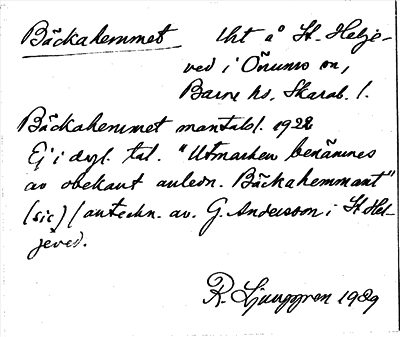 Bäckahemmet Urt å St. Helje-
ved i Önums sn,
Barne hs, Skarab. l.
Bäckahemmet mantalsl. 1928
Ej i dagl. tal. "Utmarken benämnes
av obekant anledn. Bäckahemmant"
(sic) / anteckn. av. G. Andersson i St Hel-
jeved.
R. Ljunggren 1989